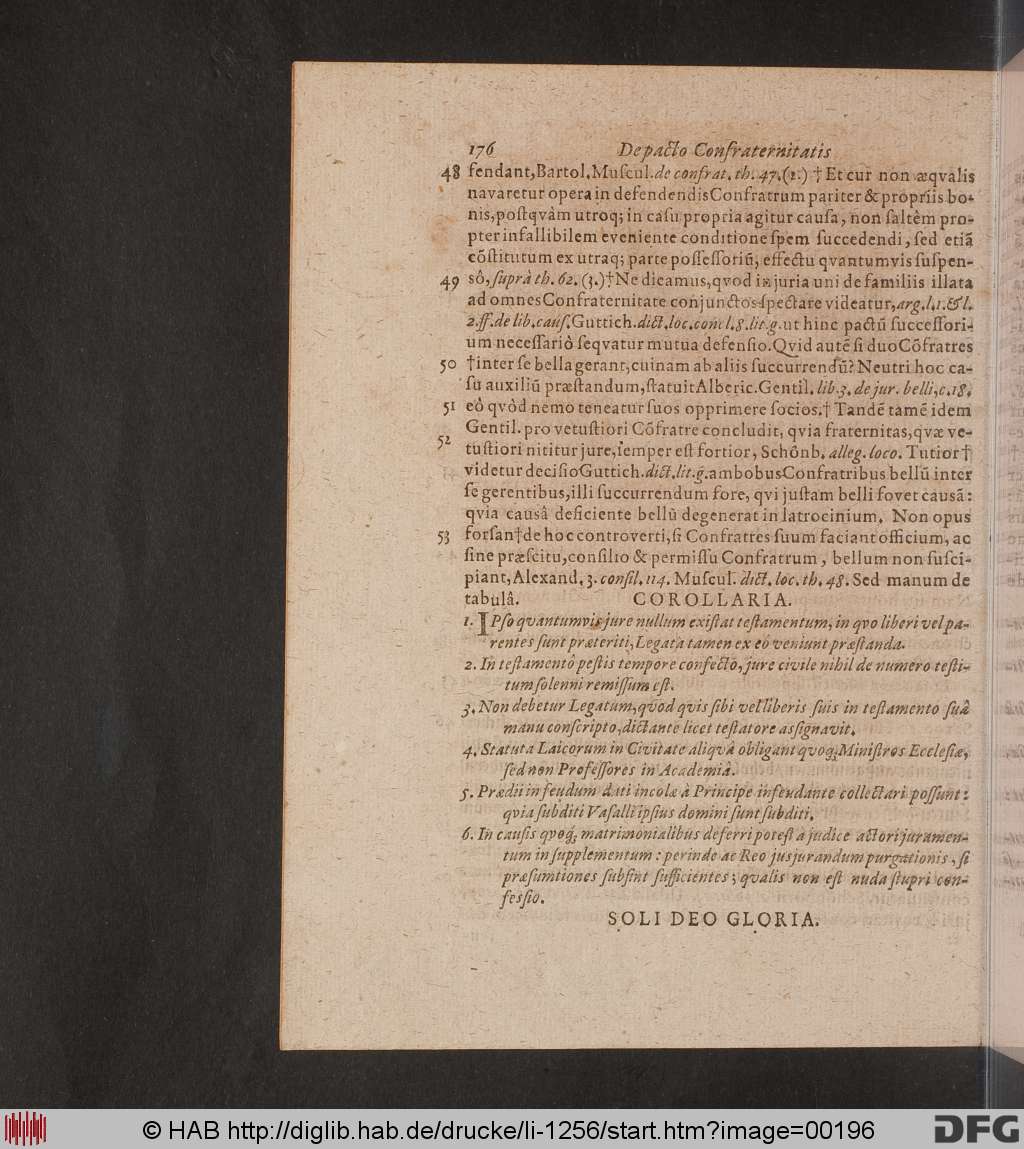 176 De pacto Confraternitatis
48 fendant, Bartol. Muſcul. de confrat. th. 47. (2.) † Et cur non æqvalis
navaretur opera in defendendis Confratrum pariter & propriis bo-
nis, poſtqvàm utroq; in caſu propria agitur cauſa, non ſaltèm pro-
pter infallibilem eveniente conditione ſpem ſuccedendi, ſed etiã
cõſtitutum ex utraq; parte poſſeſſoriũ, effectu qvantumvis ſuſpen-
49 sô, ſuprà th. 62. (3.) † Ne dicamus, qvod injuria uni de familiis illata
ad omnes Confraternitate conjunctos ſpectare videatur, arg. l. 1. & l.
2. ff. de lib. cauſ. Guttich. dict. loc. concl. 8. lit. g. ut hinc pactũ ſucceſſori-
um neceſſariò ſeqvatur mutua defenſio. Qvid autẽ ſi duo Cõfratres
50 † inter ſe bella gerant, cuinam ab aliis ſuccurrendũ? Neutri hoc ca-
ſu auxiliũ præſtandum, ſtatuit Alberic. Gentil. lib. 3. de jur. belli, c. 18.
51 eô qvòd nemo teneatur ſuos opprimere ſocios. † Tandẽ tamẽ idem
Gentil. pro vetuſtiori Cõfratre concludit, qvia fraternitas, qvæ ve-
52 tuſtiori nititur jure, ſemper eſt fortior, Schônb. alleg. loco. Tutior †
videtur deciſio Guttich. dict. lit. g. ambobus Confratribus bellũ inter
ſe gerentibus, illi ſuccurrendum fore, qvi juſtam belli fovet causã:
qvia causâ deficiente bellũ degenerat in latrocinium. Non opus
53 forſan † de hoc controverti, ſi Confratres ſuum faciant officium, ac
ſine præſcitu, conſilio & permiſſu Confratrum, bellum non ſuſci-
piant, Alexand. 3. conſil. 114. Muſcul. dict. loc. th. 48. Sed manum de
tabulâ. COROLLARIA.
1. IPſo qvantumvis jure nullum exiſtat teſtamentum, in qvo liberi vel pa-
rentes ſunt præteriti, Legata tamen ex eô veniunt præſtanda.
2. In teſtamentô peſtis tempore confectô, jure civile nihil de numero teſti-
tum ſolenni remiſſum eſt.
3. Non debetur Legatum, qvod qvis ſibi vel liberis ſuis in teſtamento ſuâ
manu conſcripto, dictante licet teſtatore aſsignavit.
4. Statuta Laicorum in Civitate aliqvâ obligant qvoq; Miniſtros Eccleſiæ,
ſed non Profeſſores in Academiâ.
5. Prædii in feudum dati incolæ à Principe infeudante collectari poſſunt:
qvia ſubditi Vaſalli ipſius domini ſunt ſubditi.
6. In cauſis qvoq; matrimonialibus deferri poteſt a judice actori juramen-
tum in ſupplementum: perinde ac Reo jusjurandum purgationis, ſi
præſumtiones ſubſint ſufficientes; qvalis non eſt nuda ſtupri con-
feſſio.
SOLI DEO GLORIA.
© HAB http://diglib.hab.de/drucke/li-1256/start.htm?image=00196
DFG